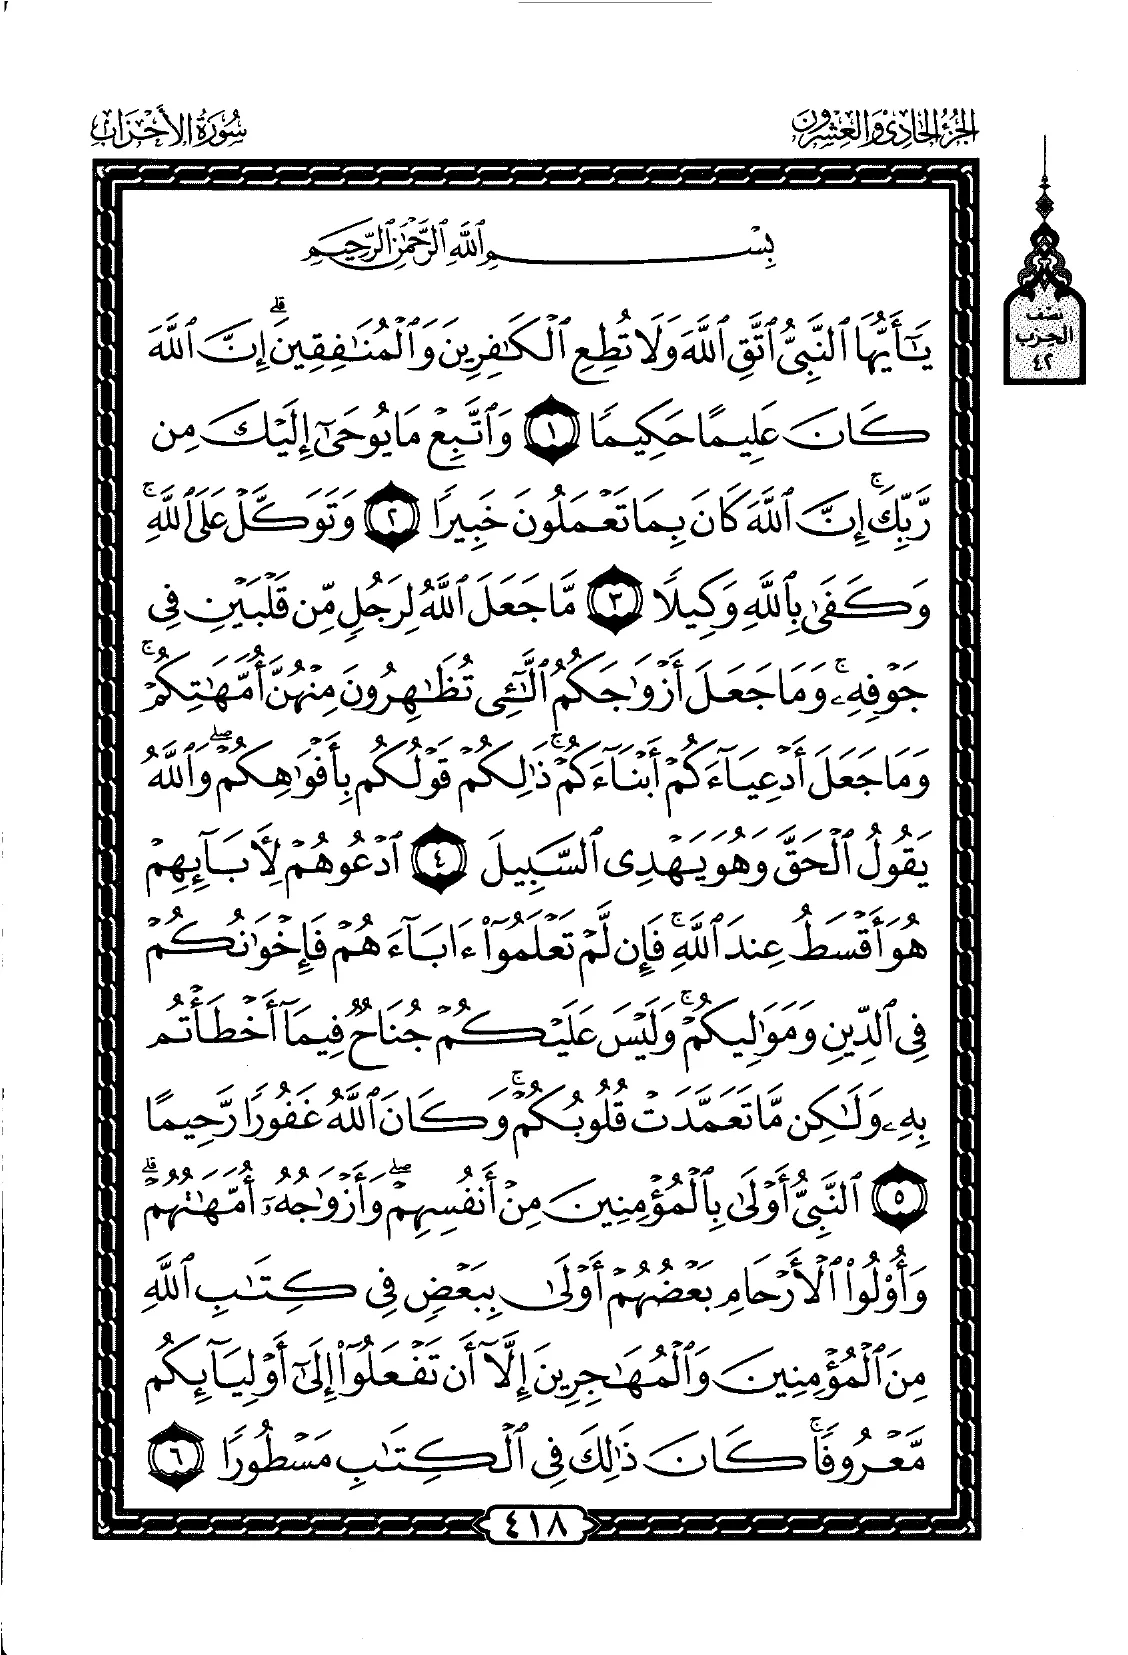 الجزء الحادي والعشرون
سورة الأحزاب
نصف
الحزب
٤٢
بِسْمِ ٱللَّهِ ٱلرَّحْمَٰنِ ٱلرَّحِيمِ
يَٰٓأَيُّهَا ٱلنَّبِىُّ ٱتَّقِ ٱللَّهَ وَلَا تُطِعِ ٱلْكَٰفِرِينَ وَٱلْمُنَٰفِقِينَ ۗ إِنَّ ٱللَّهَ
كَانَ عَلِيمًا حَكِيمًا ١ وَٱتَّبِعْ مَا يُوحَىٰٓ إِلَيْكَ مِن
رَّبِّكَ ۚ إِنَّ ٱللَّهَ كَانَ بِمَا تَعْمَلُونَ خَبِيرًا ٢ وَتَوَكَّلْ عَلَى ٱللَّهِ ۚ
وَكَفَىٰ بِٱللَّهِ وَكِيلًا ٣ مَّا جَعَلَ ٱللَّهُ لِرَجُلٍ مِّن قَلْبَيْنِ فِى
جَوْفِهِۦ ۚ وَمَا جَعَلَ أَزْوَٰجَكُمُ ٱلَّٰٓـِٔى تُظَٰهِرُونَ مِنْهُنَّ أُمَّهَٰتِكُمْ ۚ
وَمَا جَعَلَ أَدْعِيَآءَكُمْ أَبْنَآءَكُمْ ۚ ذَٰلِكُمْ قَوْلُكُم بِأَفْوَٰهِكُمْ ۖ وَٱللَّهُ
يَقُولُ ٱلْحَقَّ وَهُوَ يَهْدِى ٱلسَّبِيلَ ٤ ٱدْعُوهُمْ لِـَٔابَآئِهِمْ
هُوَ أَقْسَطُ عِندَ ٱللَّهِ ۚ فَإِن لَّمْ تَعْلَمُوٓا۟ ءَابَآءَهُمْ فَإِخْوَٰنُكُمْ
فِى ٱلدِّينِ وَمَوَٰلِيكُمْ ۚ وَلَيْسَ عَلَيْكُمْ جُنَاحٌ فِيمَآ أَخْطَأْتُم
بِهِۦ وَلَٰكِن مَّا تَعَمَّدَتْ قُلُوبُكُمْ ۚ وَكَانَ ٱللَّهُ غَفُورًا رَّحِيمًا
٥ ٱلنَّبِىُّ أَوْلَىٰ بِٱلْمُؤْمِنِينَ مِنْ أَنفُسِهِمْ ۖ وَأَزْوَٰجُهُۥٓ أُمَّهَٰتُهُمْ ۗ
وَأُو۟لُوا۟ ٱلْأَرْحَامِ بَعْضُهُمْ أَوْلَىٰ بِبَعْضٍ فِى كِتَٰبِ ٱللَّهِ
مِنَ ٱلْمُؤْمِنِينَ وَٱلْمُهَٰجِرِينَ إِلَّآ أَن تَفْعَلُوٓا۟ إِلَىٰٓ أَوْلِيَآئِكُم
مَّعْرُوفًا ۚ كَانَ ذَٰلِكَ فِى ٱلْكِتَٰبِ مَسْطُورًا ٦
٤١٨